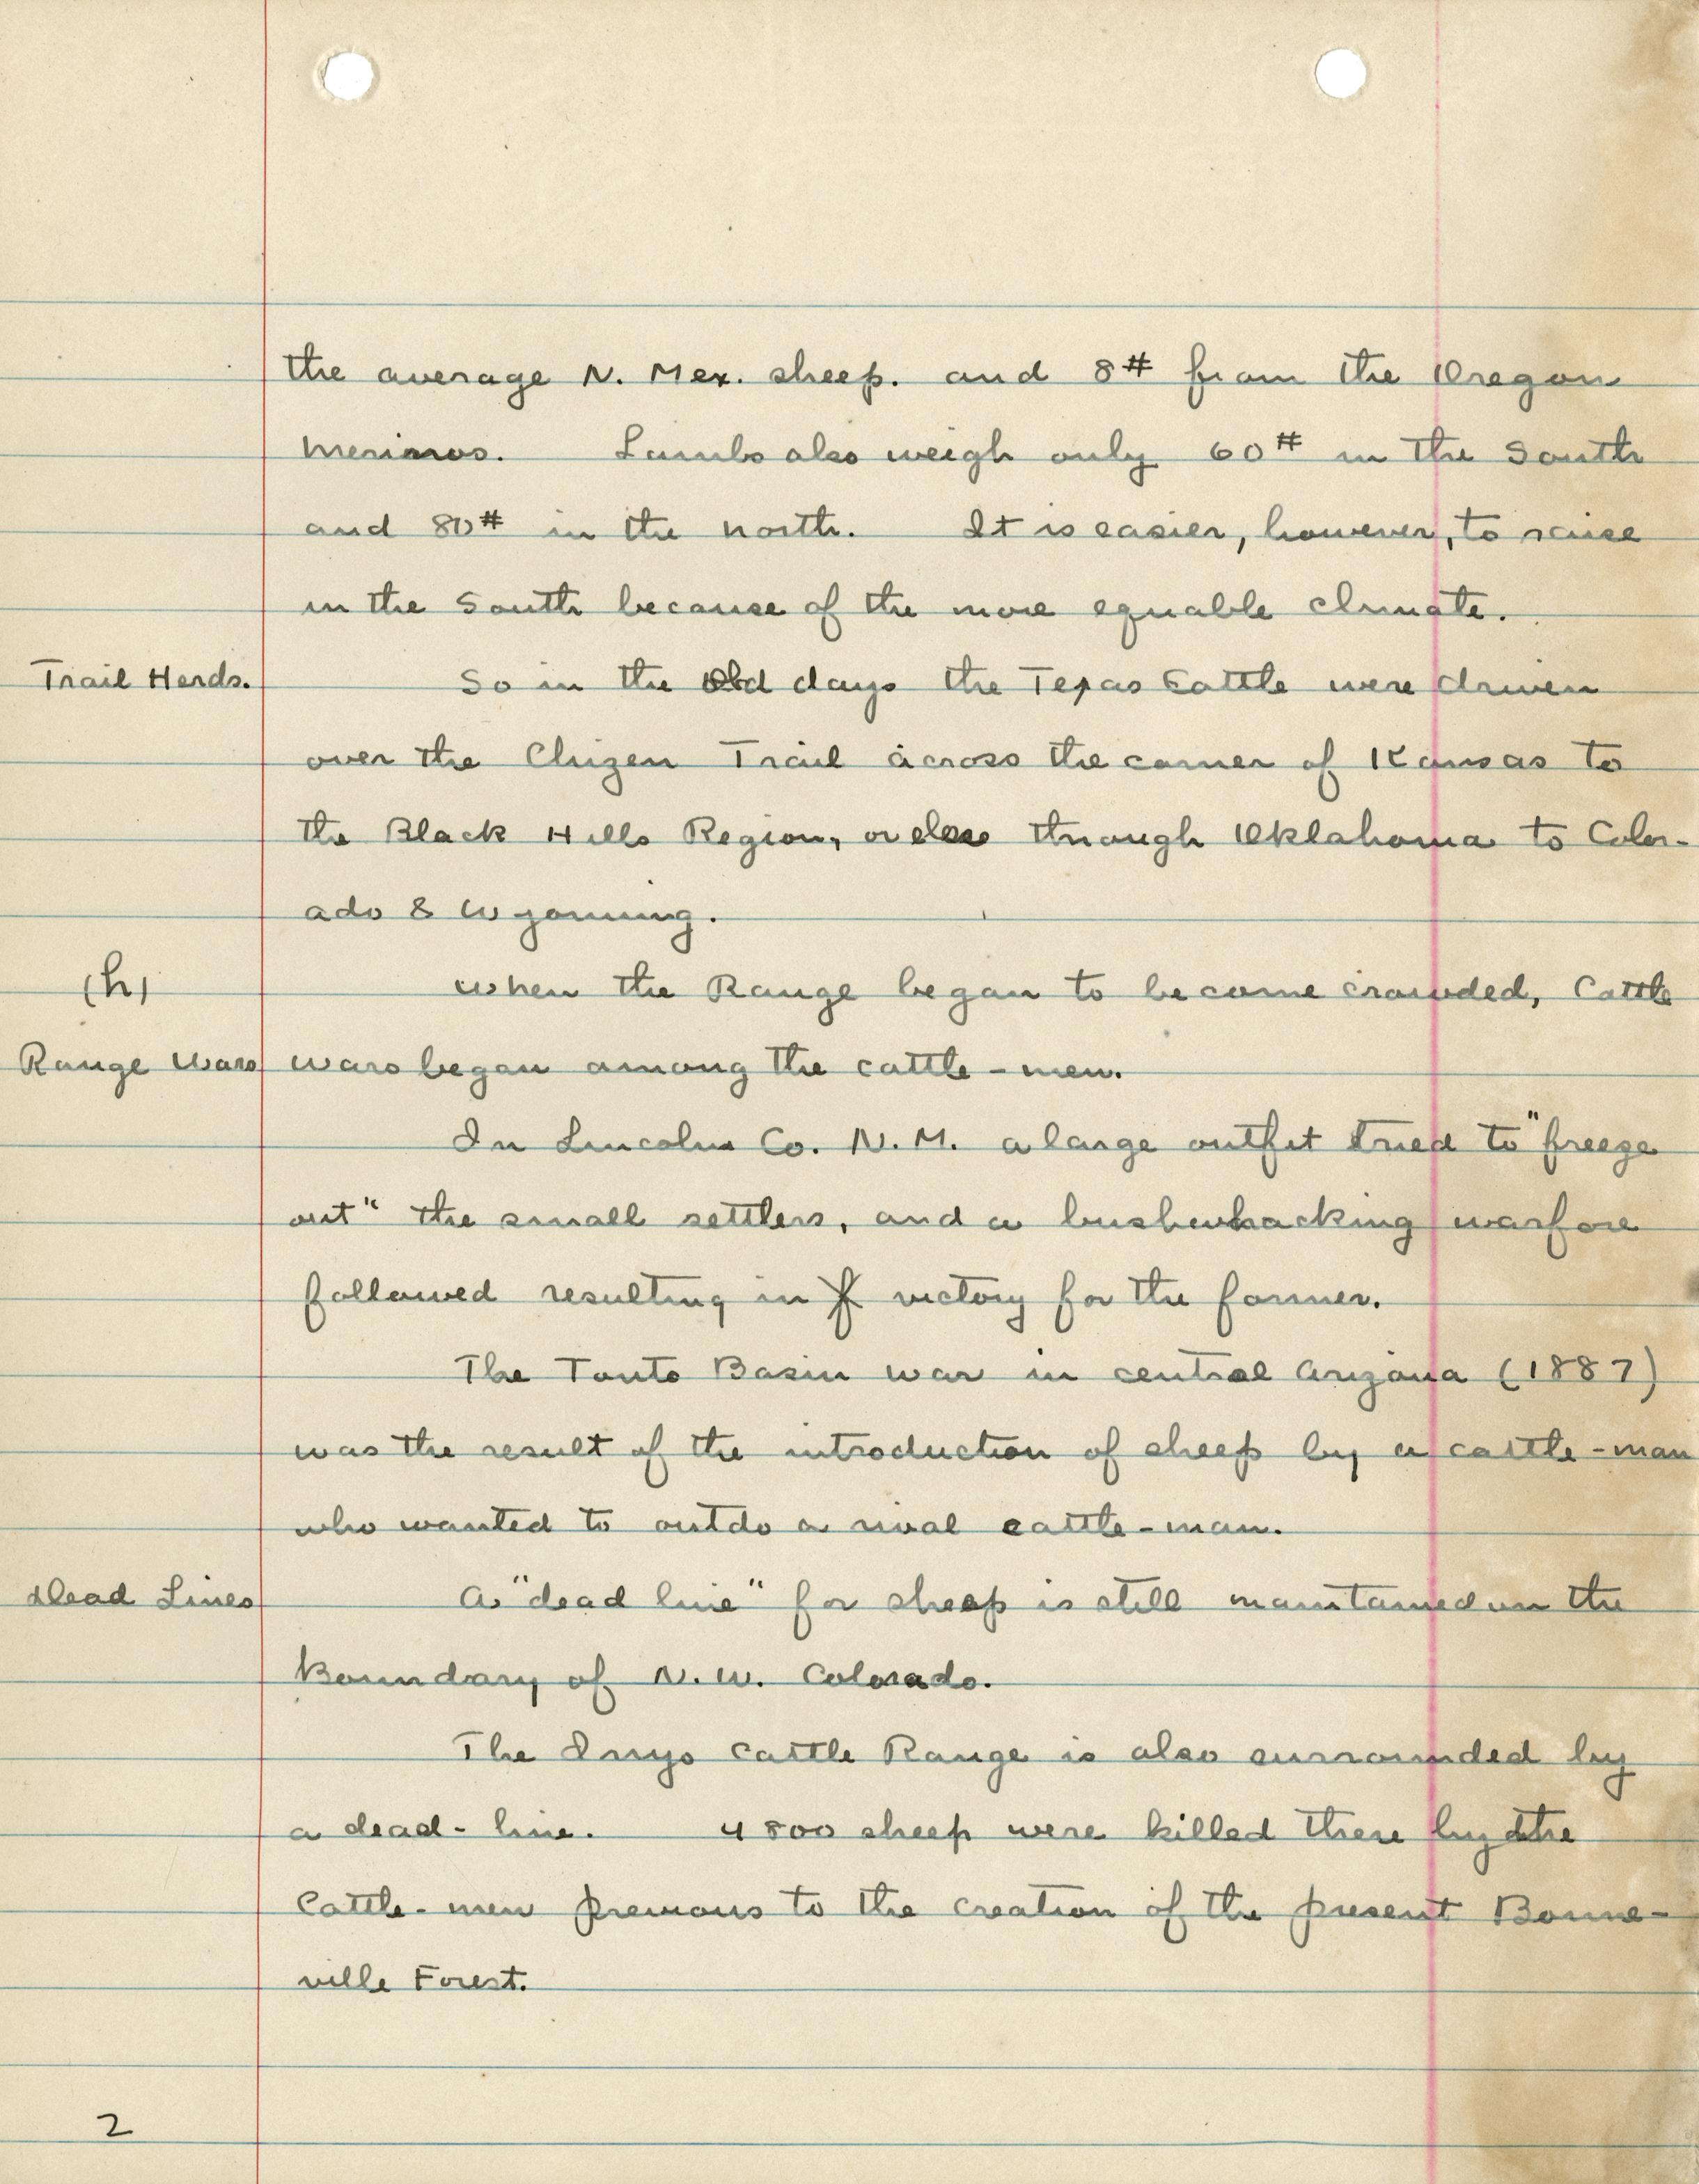 the average N. Mex. sheep. and 8# from the Oregon
Merinos. Lambs also weigh only 60# in the South
and 80# in the north. It is easier, however, to raise
in the South because of the more equable climate.
Trail Herds. So in the old days the Texas Cattle were driven
over the Chizen Trail across the corner of Kansas to
the Black Hills Region, or else through Oklahoma to Color-
ado & Wyoming.
(h) When the Range began to become crowded, Cattle
Range Wars wars began among the cattle-men.
In Lincoln Co. N.M. a large outfit tried to "freeze
out" the small settlers, and a bushwhacking warfare
followed resulting in victory for the former.
The Tonto Basin war in central Arizona (1887)
was the result of the introduction of sheep by a cattle-man
who wanted to outdo a rival cattle-man.
Dead Lines A "dead line" for sheep is still maintained on the
Boundary of N.W. Colorado.
The Inyo Cattle Range is also surrounded by
a dead-line. 4800 sheep were killed there by the
Cattle-men previous to the creation of the present Bonne-
ville Forest.
2